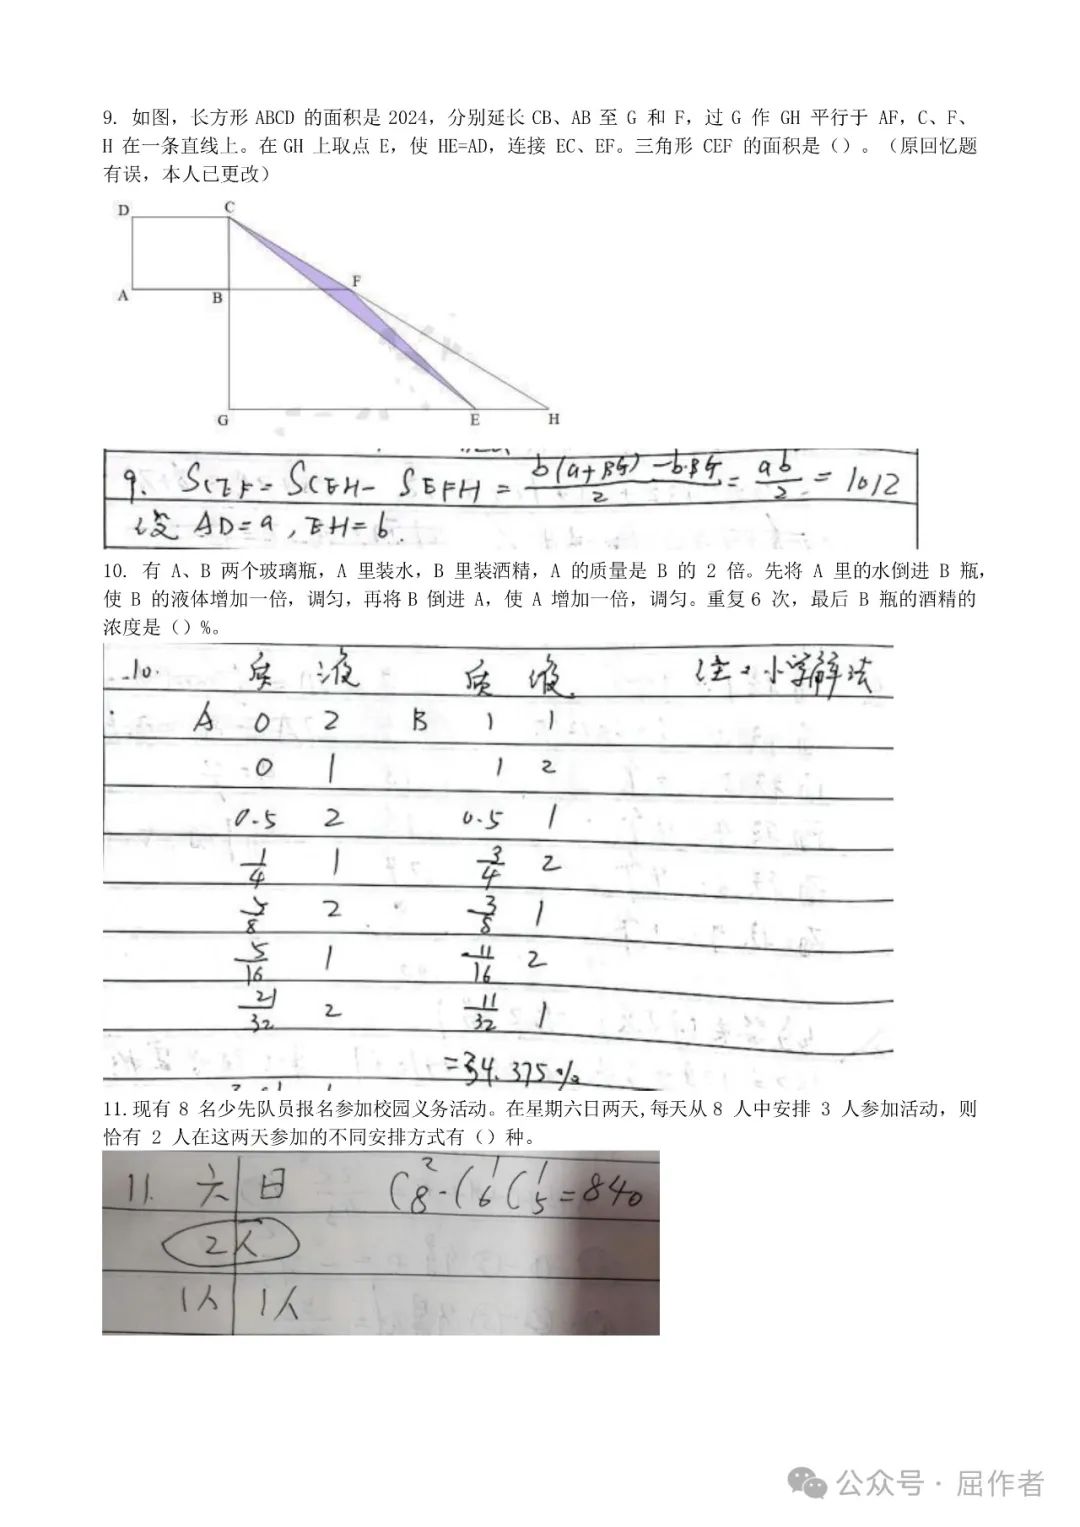 9. 如图，长方形 ABCD 的面积是 2024，分别延长 CB、AB 至 G 和 F，过 G 作 GH 平行于 AF，C、F、
H 在一条直线上。在 GH 上取点 E，使 HE=AD，连接 EC、EF。三角形 CEF 的面积是（）。（原回忆题
有误，本人已更改）
D C
F
A B
G E H
9. S CEF = S CEH - S EFH = b(a+BG)-b·BG/2 = ab/2 = 1012
设 AD=a, EH=b.
10. 有 A、B 两个玻璃瓶，A 里装水，B 里装洒精，A 的质量是 B 的 2 倍。先将 A 里的水倒进 B 瓶，
使 B 的液体增加一倍，调匀，再将 B 倒进 A，使 A 增加一倍，调匀。重复 6 次，最后 B 瓶的酒精的
浓度是（）%。
10. 质 液 质 液 注：小学解法
A 0 2 B 1 1
0 1 1 2
0.5 2 0.5 1
1/4 1 3/4 2
5/8 2 3/8 1
5/16 1 11/16 2
21/32 2 11/32 1
=34.375%
11.现有 8 名少先队员报名参加校园义务活动。在星期六日两天,每天从 8 人中安排 3 人参加活动，则
恰有 2 人在这两天参加的不同安排方式有（）种。
11. 六 日 C₈²·C₆¹C₅¹=840
2人
1人 1人
公众号 · 屈作者